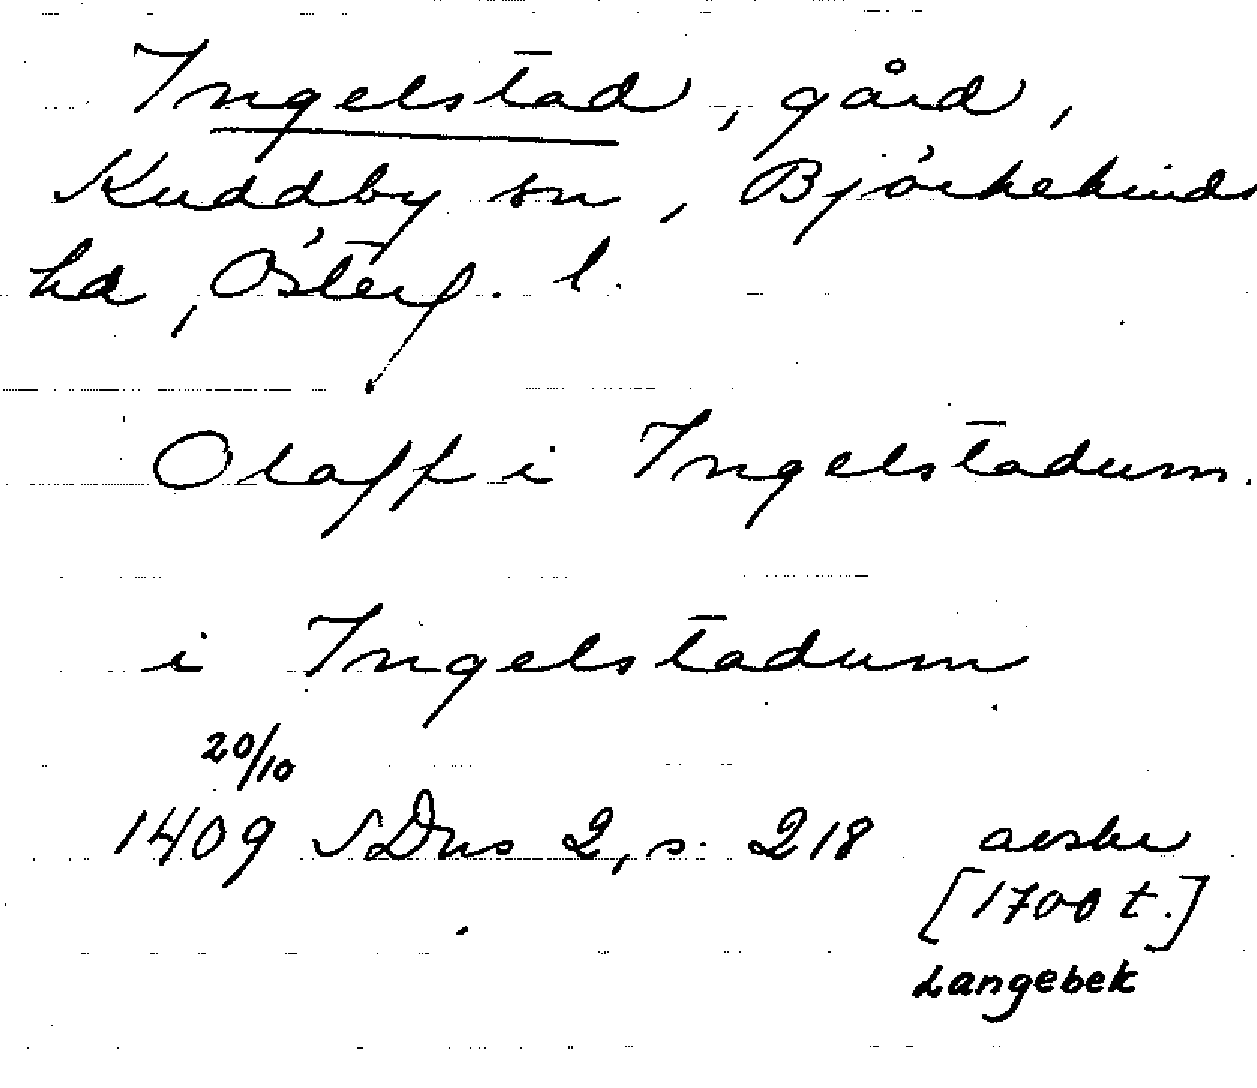 Ingelstad, gård,
Kuddby sn, Björkekinds
hd, Österg. l.
Olaff i Ingelstadum.
i Ingelstadum
20/10
1409 SDns 2, s. 218 avskr
[1700 t.]
Langebek